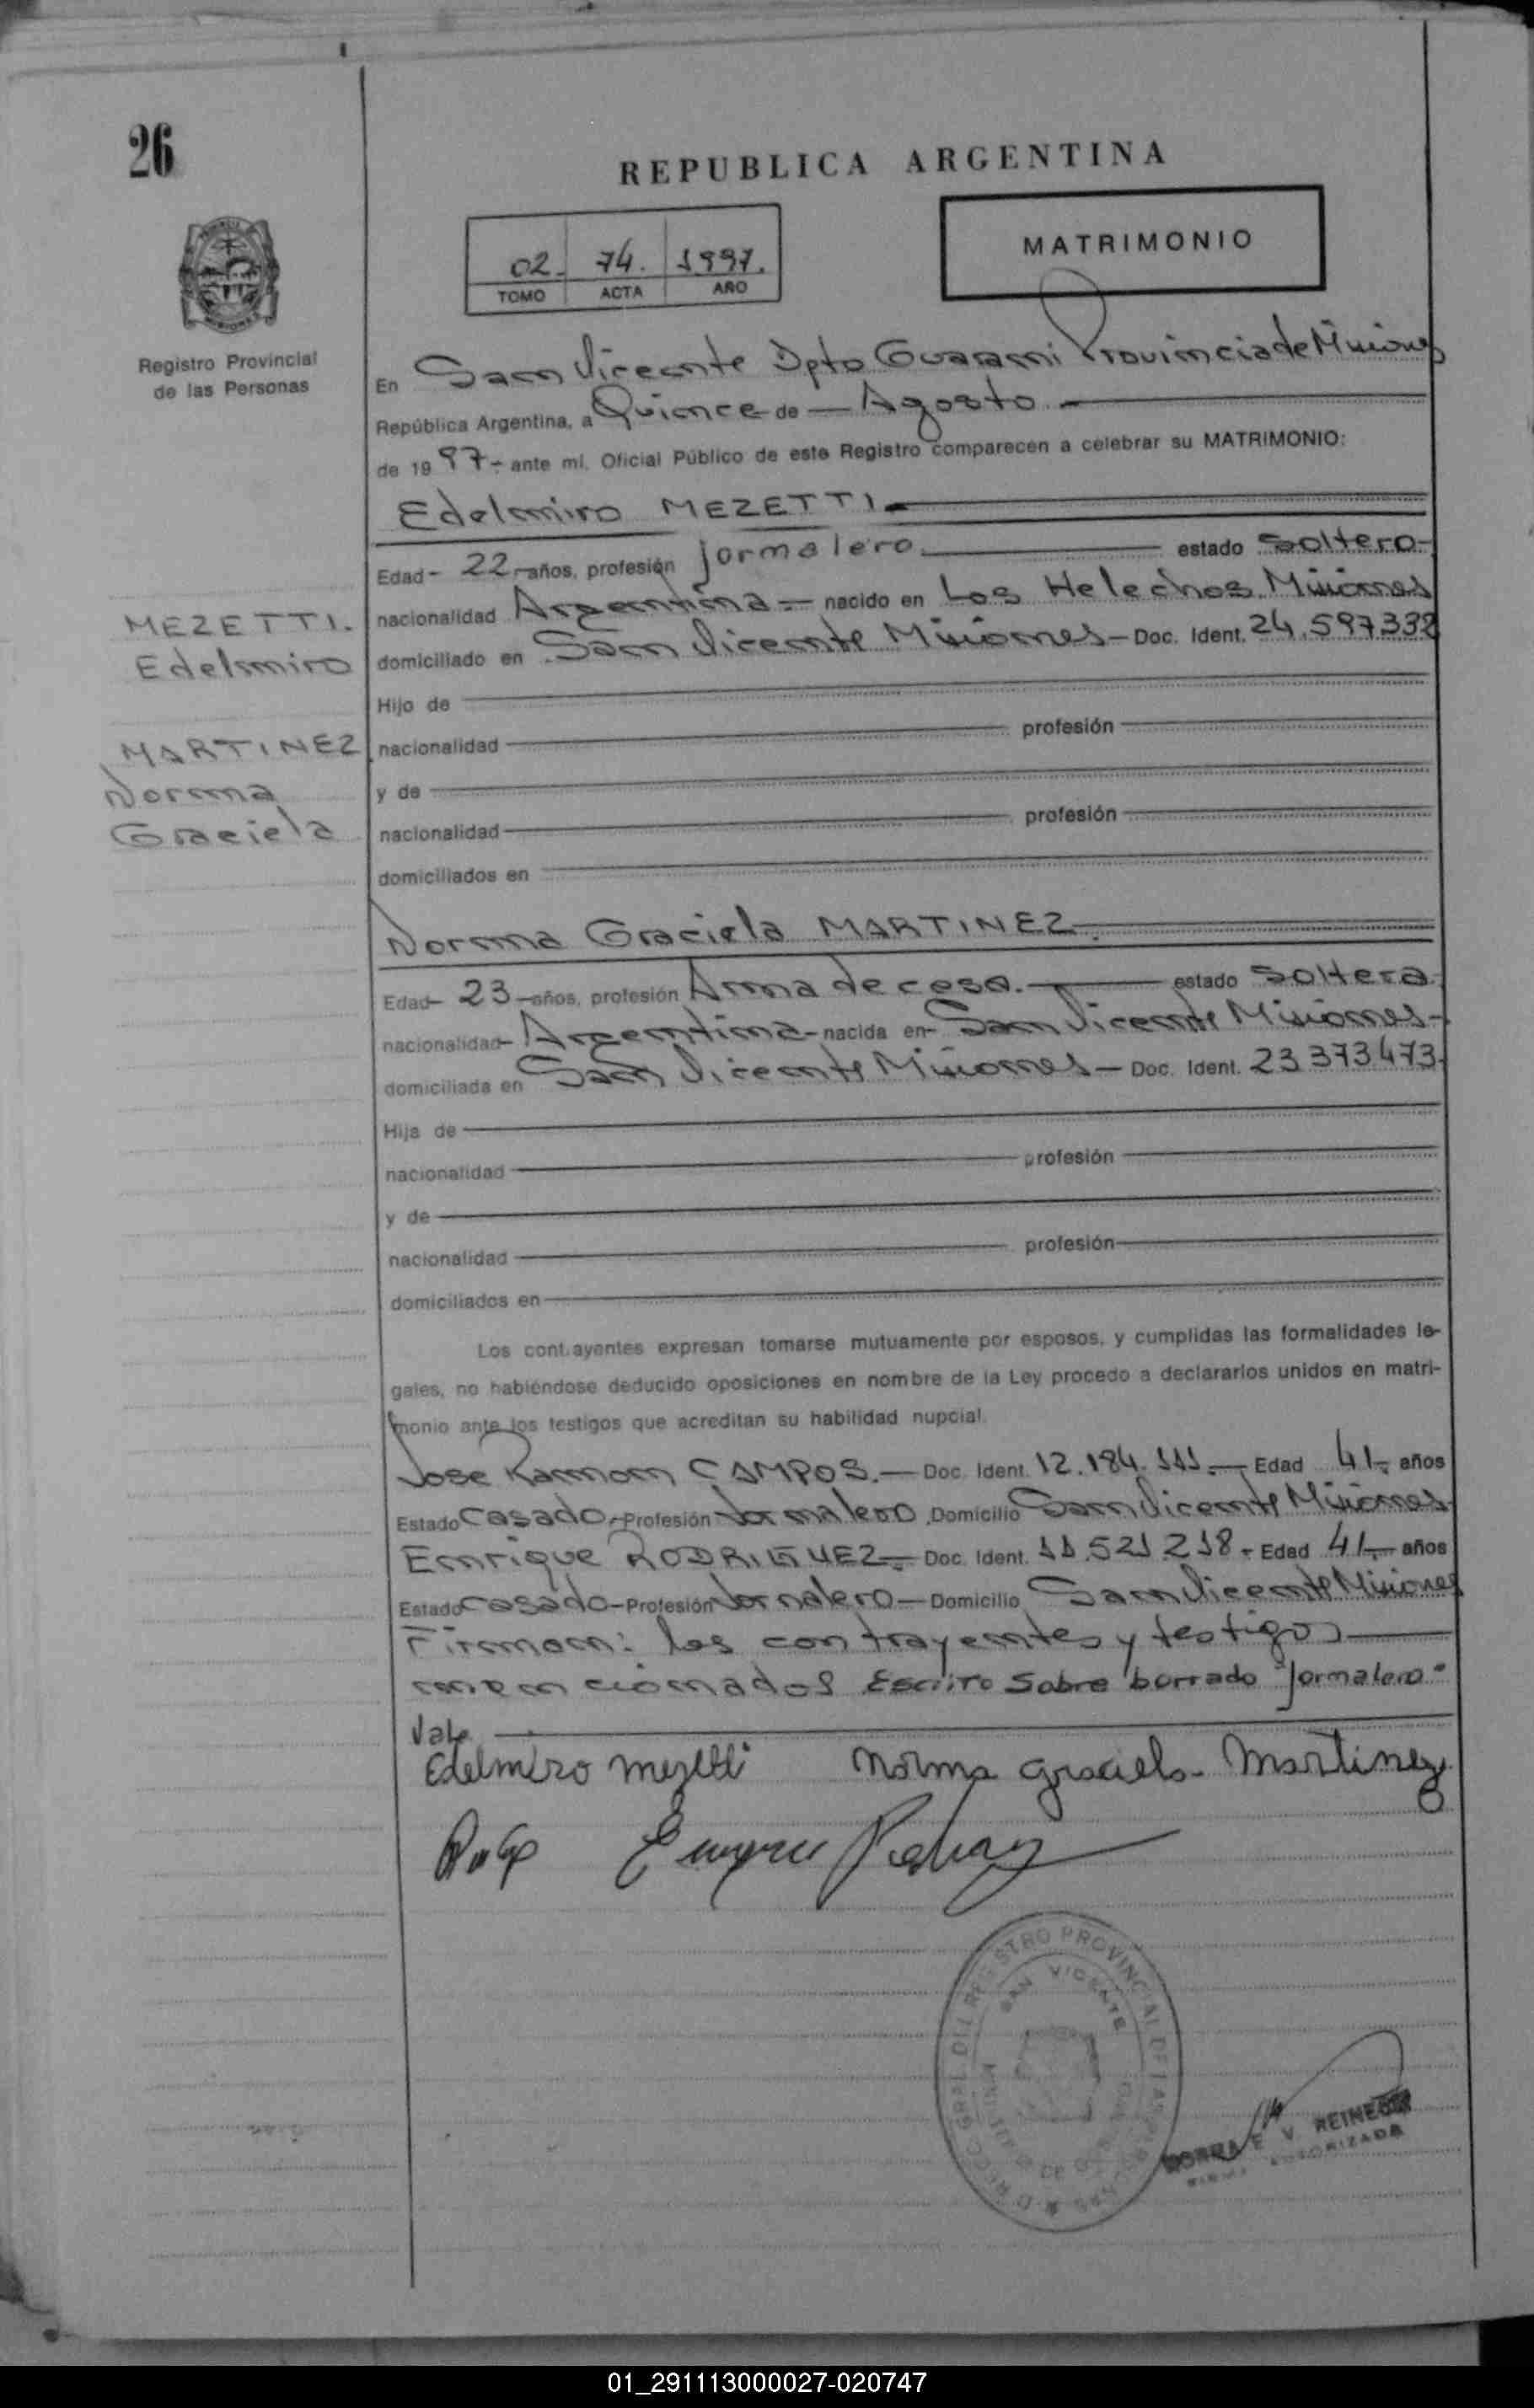 26
REPUBLICA ARGENTINA
02. 74. 1997.
TOMO ACTA AÑO
MATRIMONIO
Registro Provincial
de las Personas
En San Vicente Dpto Guarani Provincia de Misiones
República Argentina, a Quince de Agosto
de 1997 ante mí, Oficial Público de este Registro comparecen a celebrar su MATRIMONIO:
Edelmiro MEZETTI
Edad 22 años, profesión jornalero estado Soltero
nacionalidad Argentina nacido en Los Helechos Misiones
domiciliado en San Vicente Misiones Doc. Ident. 24.597332
MEZETTI.
Edelmiro
Hijo de
nacionalidad profesión
y de
nacionalidad profesión
domiciliados en
MARTINEZ
Norma
Graciela
Norma Graciela MARTINEZ
Edad 23 años, profesión Ama de casa. estado Soltera
nacionalidad Argentina nacida en San Vicente Misiones
domiciliada en San Vicente Misiones Doc. Ident. 23373473
Hija de
nacionalidad profesión
y de
nacionalidad profesión
domiciliados en
Los contrayentes expresan tomarse mutuamente por esposos, y cumplidas las formalidades le-
gales, no habiéndose deducido oposiciones en nombre de la Ley procedo a declararlos unidos en matri-
monio ante los testigos que acreditan su habilidad nupcial.
Jose Ramon CAMPOS. Doc. Ident. 12.184.111. Edad 41 años
Estado Casado Profesión Jornalero Domicilio San Vicente Misiones
Enrique RODRIGUEZ Doc. Ident. 11.521218 Edad 41 años
Estado Casado Profesión Jornalero Domicilio San Vicente Misiones
Firman: los contrayentes y testigos
mencionados Escrito Sobre borrado "jornalero"
Vale
Edelmiro Mezetti Norma Graciela Martinez
REGISTRO PROVINCIAL DE LAS PERSONAS
SAN VICENTE
01_291113000027-020747